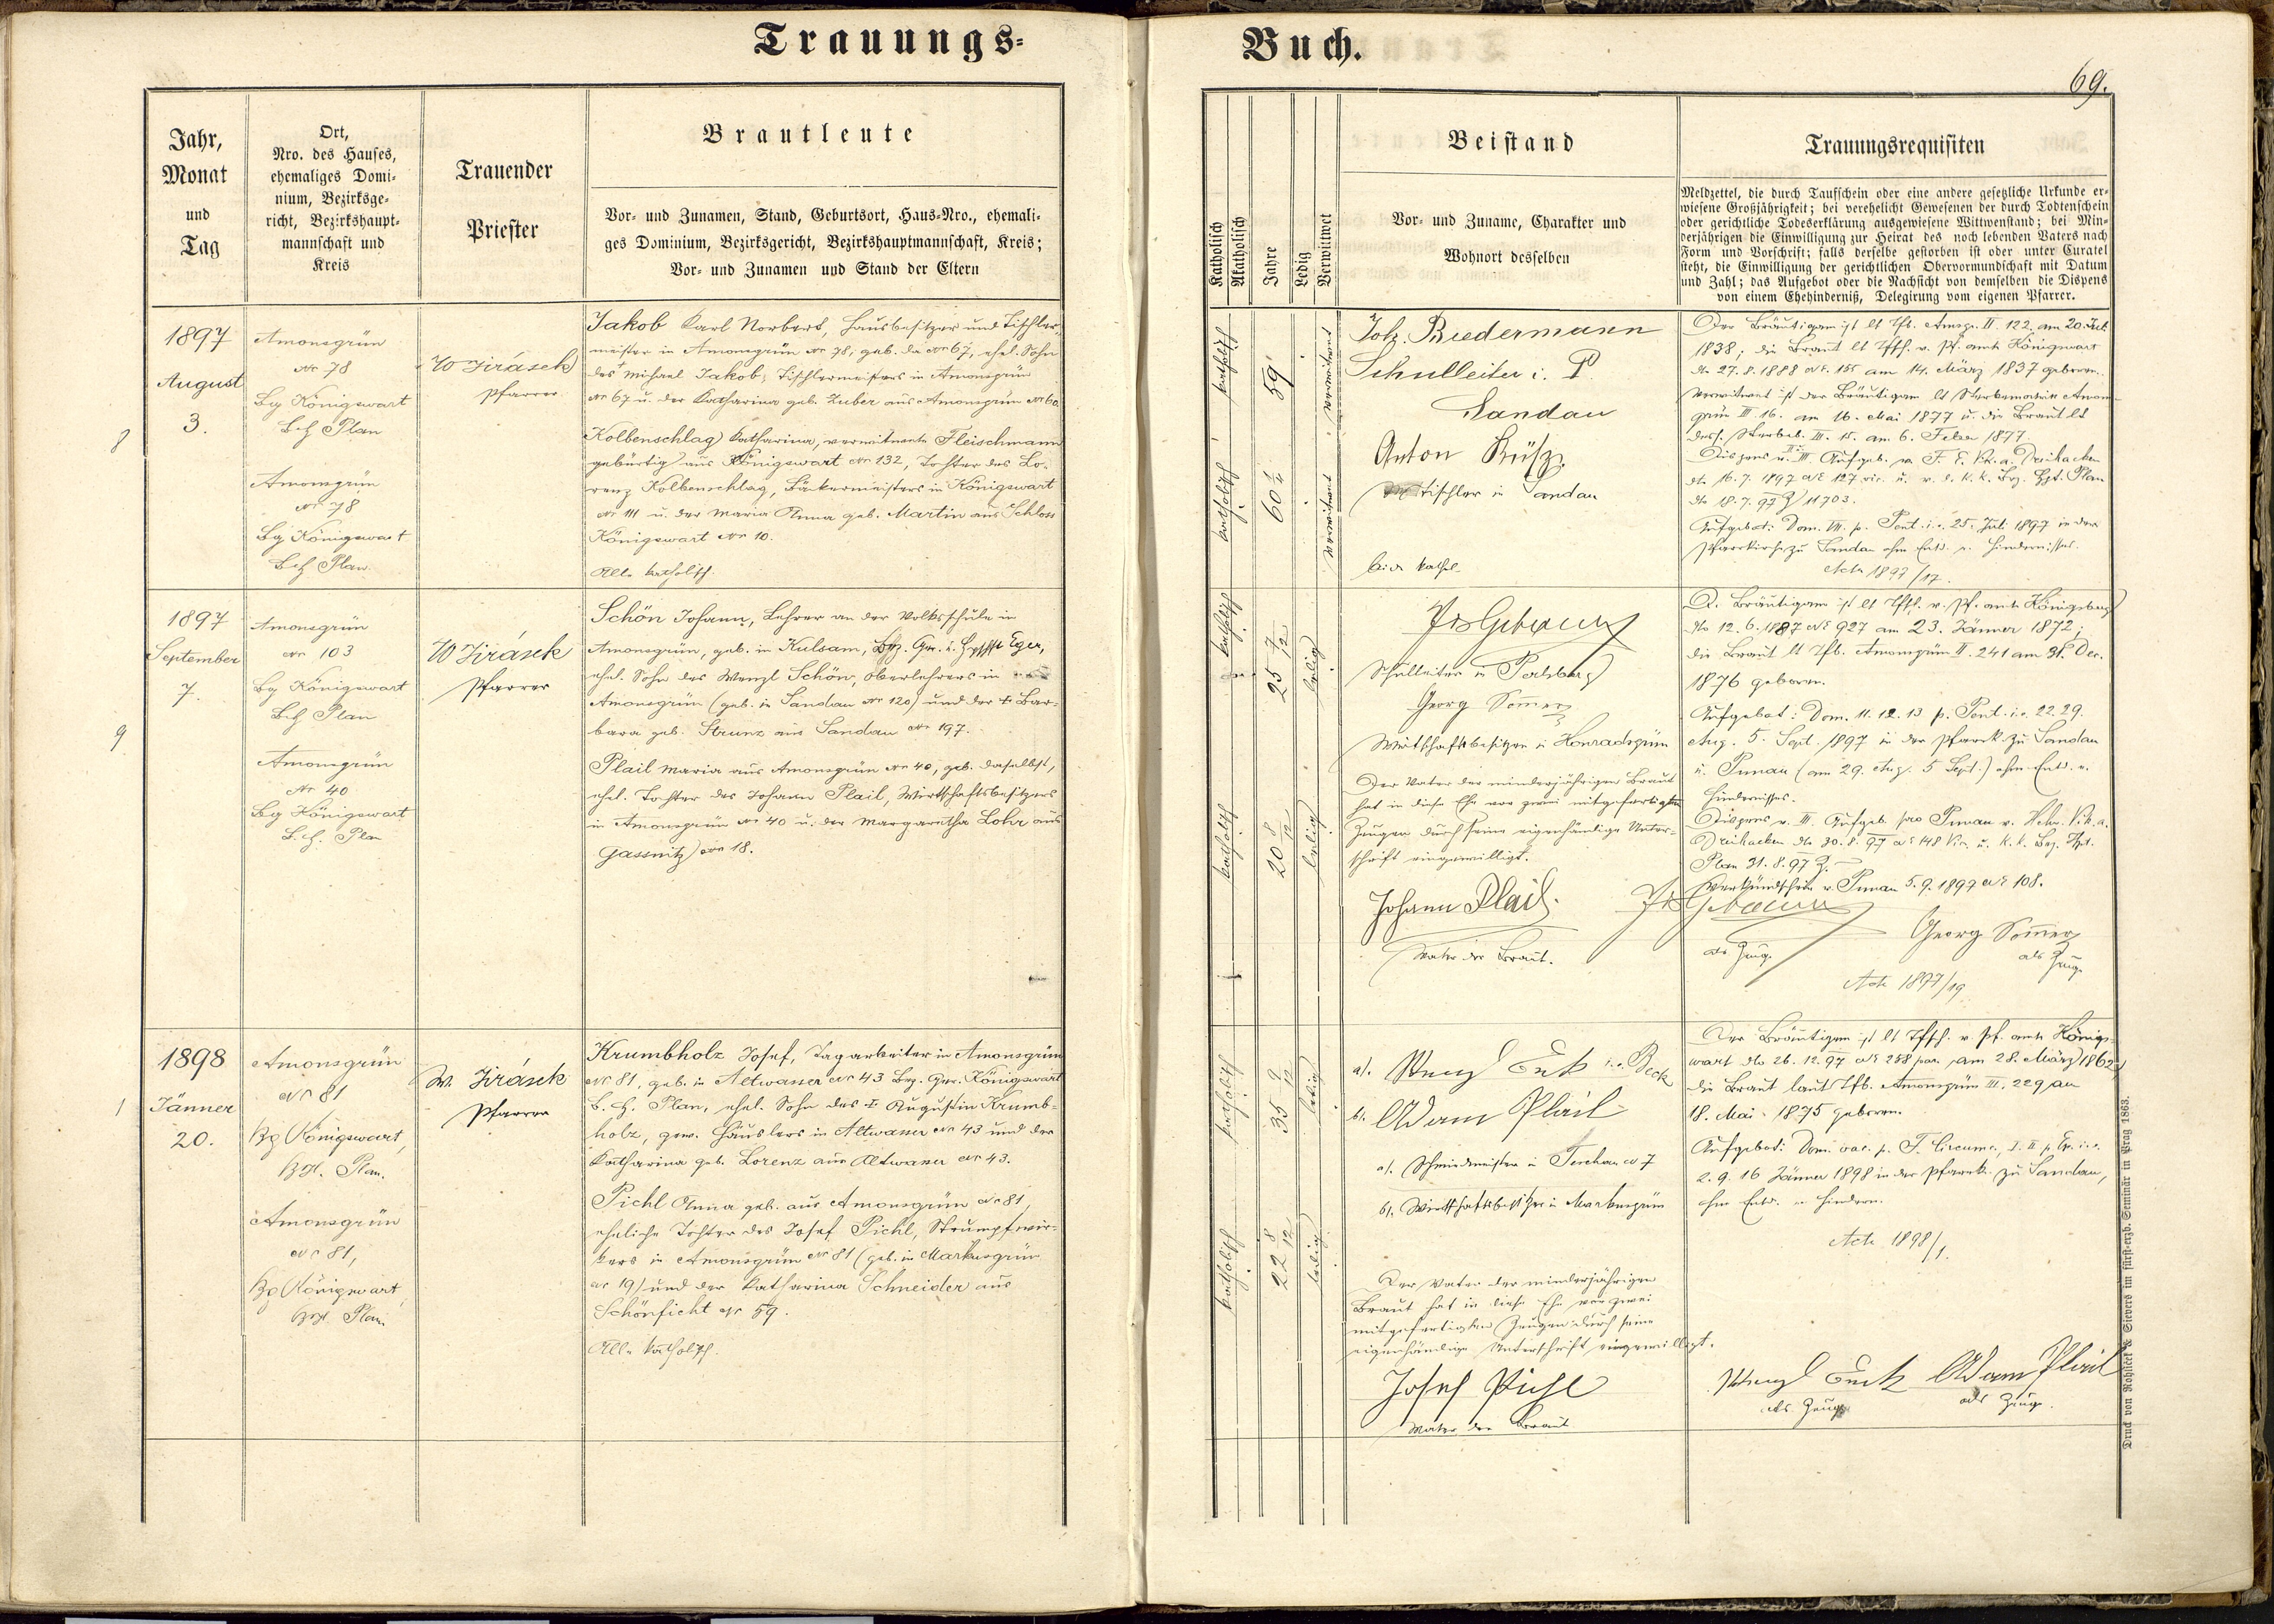 Trauungs-
Buch.
69.
Jahr,
Monat
und
Tag
Ort,
Nro. des Hauses,
ehemaliges Domi-
nium, Bezirksge-
richt, Bezirkshaupt-
mannschaft und
Kreis
Trauender
Priester
Brautleute
Vor- und Zunamen, Stand, Geburtsort, Haus-Nro., ehemali-
ges Dominium, Bezirksgericht, Bezirkshauptmannschaft, Kreis;
Vor- und Zunamen und Stand der Eltern
Katholisch
Akatholisch
Jahre
Ledig
Verwittwet
Beistand
Vor- und Zuname, Charakter und
Wohnort desselben
Trauungsrequisiten
Meldzettel, die durch Taufschein oder eine andere gesetzliche Urkunde er-
wiesene Großjährigkeit; bei verehelicht Gewesenen der durch Todtenschein
oder gerichtliche Todeserklärung ausgewiesene Wittwenstand; bei Min-
derjährigen die Einwilligung zur Heirat des noch lebenden Vaters nach
Form und Vorschrift; falls derselbe gestorben ist oder unter Curatel
steht, die Einwilligung der gerichtlichen Obervormundschaft mit Datum
und Zahl; das Aufgebot oder die Nachsicht von demselben die Dispens
von einem Ehehinderniß, Delegirung vom eigenen Pfarrer.
8
1897
August
3.
Amonsgrün
Nr 78
Bg Königswart
B.H. Plan
Amonsgrün
Nr 78
Bg Königswart
B.H. Plan
W Jirásek
Pfarrer
Jakob Karl Norbert, Hausbesitzer und Tischler-
meister in Amonsgrün Nr 78, geb. da Nr 67, ehel. Sohn
des Michael Jakob, Tischlermeisters in Amonsgrün
Nr 67 u. der Katharina geb. Zuber aus Amonsgrün Nr 60.
Kolbenschlag Katharina, verwitwete Fleischmann
gebürtig aus Königswart Nr 132, Tochter des Lo-
renz Kolbenschlag, Bäkermeisters in Königswart
Nr 111 u. der Maria Anna geb. Martin aus Schloss
Königswart Nr 10.
Alle katholisch.
katholisch
59
verwitwet
katholisch
60
verwitwet
Joh. Biedermann
Schulleiter i. P.
Sandau
Anton
Tischler in Sandau
beide kathol.
Der Bräutigam ist lt Tfb. Amsgr. II. 122. am 20. Juli
1838; die Braut lt Tfsch. v. Pf. amte Königswart
dto 27. 8. 1888 Nr. 155 am 14. März 1837 geboren.
Verwitwet ist der Bräutigam lt Sterbematrik Amons-
grün III. 16. am 16. Mai 1877 u. die Braut lt
ders. Sterbeb. III. 15. am 6. Feber 1877.
Dispens v. II. u. III. Aufgeb. v. Dreihacken
dto 16. 7. 1897 Nr 127 vic. u. v. d. k. k. Bez. Hpt. Plan
dto 18. 7. 97 Z 11703.
Aufgebot: Dom. VII. p. Pent. i.e. 25. Juli 1897 in der
Pfarrkirche zu Sandau ohne Entd. e. Hindernisses.
Acta 1897/17.
9
1897
September
7.
Amonsgrün
Nr 103
Bg Königswart
B.H. Plan
Amonsgrün
Nr 40
Bg Königswart
B.H. Plan
W Jirásek
Pfarrer
Schön Johann, Lehrer an der Volksschule in
Amonsgrün, geb. in Kulsam, Bez. Ger. u. Eger,
ehel. Sohn des Wenzl Schön, Oberlehrers in
Amonsgrün (geb. in Sandau Nr 120) und der † Bar-
bara geb. Strunz aus Sandau Nr 197.
Plail Maria aus Amonsgrün Nr 40, geb. daselbst,
ehel. Tochter des Johann Plail, Wirtschaftsbesitzers
in Amonsgrün Nr 40 u. der Margaretha Lohr aus
Gassnitz Nr 18.
katholisch
25 7/12
ledig
katholisch
20 8/12
ledig
Schulleiter in
Georg Sommer
Wirtschaftsbesitzer in Honradsgrün
Der Vater der minderjährigen Braut
hat in diese Ehe vor zwei mitgefertigten
Zeugen durch seine eigenhändige Unter-
schrift eingewilligt.
Johann Plail.
Vater der Braut.
als Zeuge
Georg Sommer
als Zeuge
D. Bräutigam ist lt Tfsch. v. Pf. amte Königsberg
dto 12. 6. 1887 Nr 927 am 23. Jänner 1872;
die Braut lt Tfb. Amonsgrün II. 241 am 31. Dec.
1876 geboren.
Aufgebot: Dom. 11. 12. 13 p. Pent. i.e. 22. 29.
Aug. 5. Sept. 1897 in der Pfarrk. zu Sandau
u. Pirnau (am 29. Aug. 5 Sept.) ohne Entd. e.
Hindernisses.
Dispens v. III. Aufgeb. pro Pirnau v.
Dreihacken dto 30. 8. 97 Nr 148 Vic. u. k. k. Bez. Hpt.
Plan 31. 8. 97 Z.
Verkündschein v. Pirnau 5. 9. 1897 Nr 108.
Acta 1897/19
1
1898
Jänner
20.
Amonsgrün
Nr 81
Bg Königswart,
BH. Plan.
Amonsgrün
Nr 81,
Bg Königswart
BH. Plan.
W. Jirásek
Pfarrer
Krumbholz Josef, Tagarbeiter in Amonsgrün
Nr 81, geb. in Altwasser Nr 43 Bez. Ger. Königswart
B. H. Plan, ehel. Sohn des † Augustin Krumb-
holz, gew. Häuslers in Altwasser Nr 43 und der
Katharina geb. Lorenz aus Altwasser Nr 43.
Pichl Anna geb. aus Amonsgrün Nr 81,
eheliche Tochter des Josef Pichl, Strumpfwir-
kers in Amonsgrün Nr 81 (geb. in Markusgrün
Nr 19) und der Katharina Schneider aus
Schönficht Nr 59.
Alle katholisch.
katholisch
35 9/12
ledig
katholisch
22 8/12
ledig
a). Wenzl Beck
b. Adam Plail
a). Schmiedmeister in Teschau N 7
b). Wirtschaftsbesitzer in Markusgrün
Der Vater der minderjährigen
Braut hat in diese Ehe vor zwei
mitgefertigten Zeugen durch seine
eigenhändige Unterschrift eingewilligt.
Josef Pichl
Vater der Braut
Der Bräutigam ist lt Tfsch. v. Pf. amte Königs-
wart dto 26. 12. 97 Nr 258 par. am 28. März 1862,
die Braut laut Tfb. Amonsgrün III. 229 am
18. Mai 1875 geboren.
Aufgebot: Dom. vac. p. F. Circumc., I. II p. Ep. i.e.
2. 9. 16 Jänner 1898 in der Pfarrk. zu Sandau,
ohne Entd. e. Hindern.
Acta 1898/1.
Wenzl
als Zeuge
Adam Plail
als Zeuge.
Druck von Rohliček & Sievers im fürst-erzb. Seminar in Prag 1863.